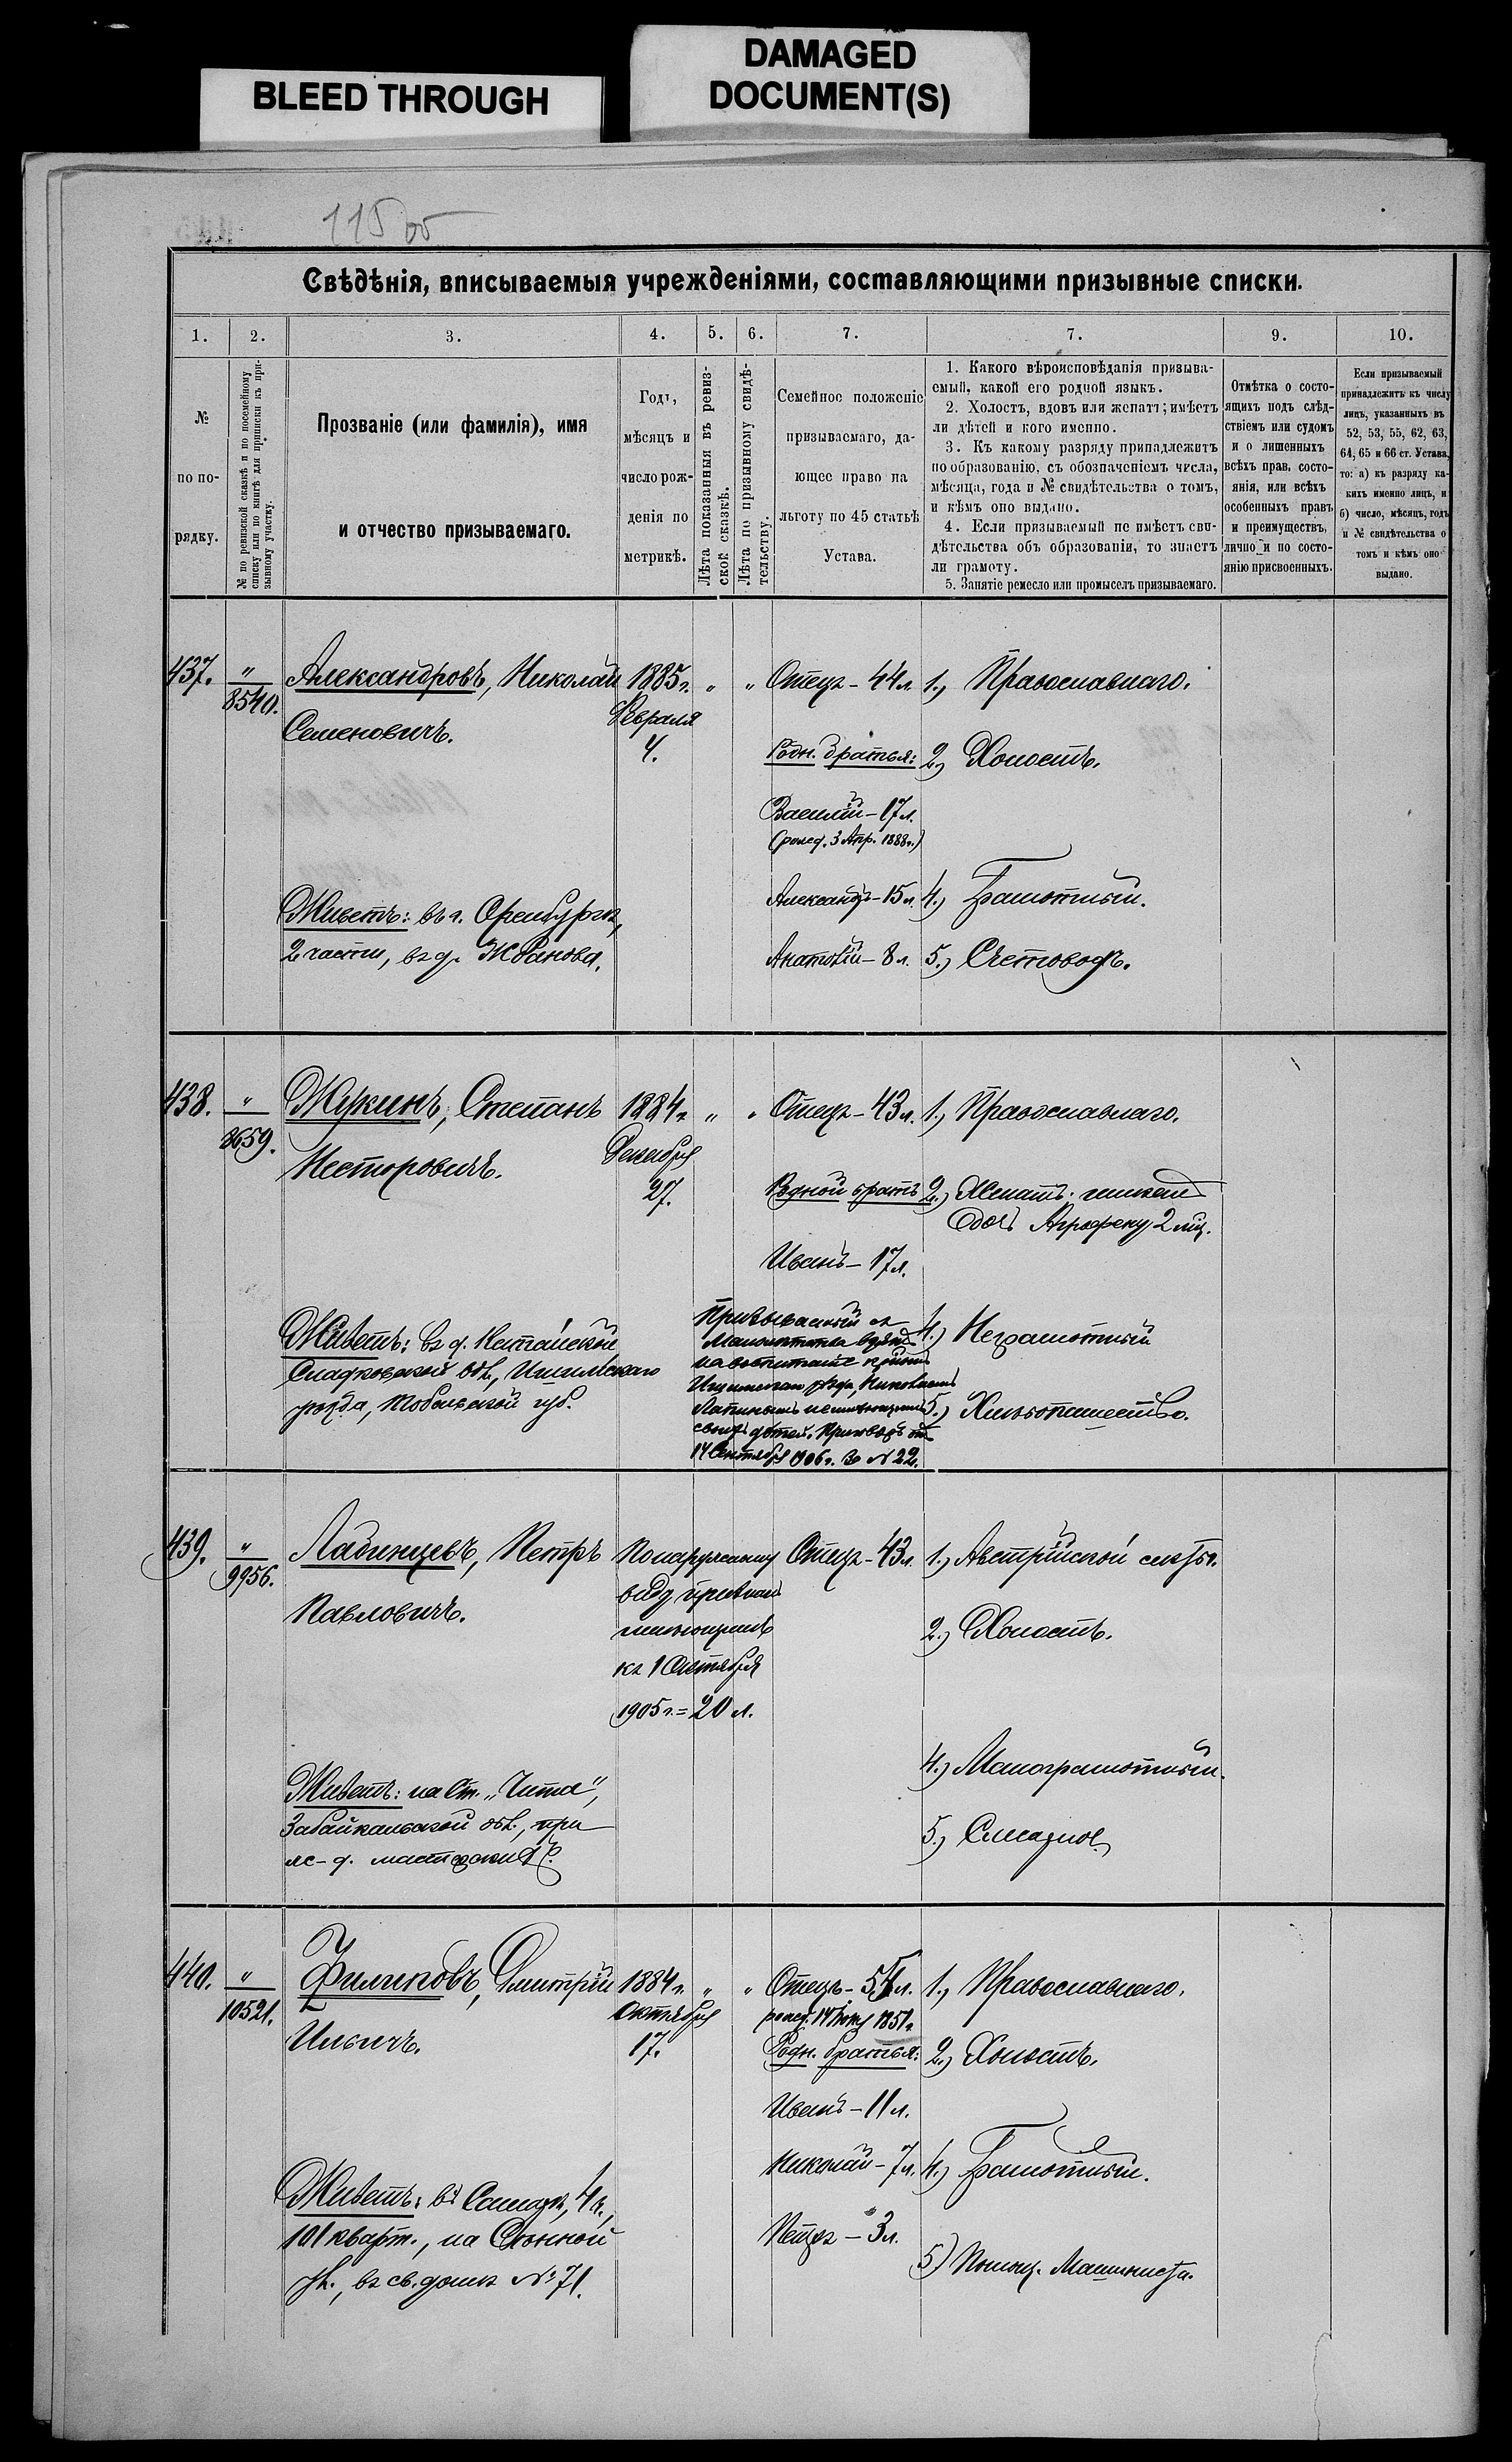 BLEED THROUGH
DAMAGED
DOCUMENT(S)
115 об
Свѣдѣнія, вписываемыя учрежденіями, составляющими призывные списки.
1.
2.
3.
4.
5.
6.
7.
7.
9.
10.
№
по по-
рядку.
№ по ревизской сказкѣ и по посемейному
списку или по книгѣ для приписки къ при-
зывному участку.
Прозваніе (или фамилія), имя
и отчество призываемаго.
Годъ,
мѣсяцъ и
число рож-
денія по
метрикѣ.
Лѣта показанныя въ ревиз-
ской сказкѣ.
Лѣта по призывному свидѣ-
тельству.
Семейное положеніе
призываемаго, да-
ющее право на
льготу по 45 статьѣ
Устава.
1. Какого вѣроисповѣданія призыва-
емый, какой его родной языкъ.
2. Холостъ, вдовъ или женатъ; имѣетъ
ли дѣтей и кого именно.
3. Къ какому разряду принадлежитъ
по образованію, съ обозначеніемъ числа,
мѣсяца, года и № свидѣтельства о томъ,
и кѣмъ оно выдано.
4. Если призываемый не имѣетъ сви-
дѣтельства объ образованіи, то знаетъ
ли грамоту.
5. Занятіе ремесло или промыселъ призываемаго.
Отмѣтка о состо-
ящихъ подъ слѣд-
ствіемъ или судомъ
и о лишенныхъ
всѣхъ прав, состо-
янія, или всѣхъ
особенныхъ правъ
и преимуществъ,
лично и по состо-
янію присвоенныхъ.
Если призываемый
принадлежитъ къ числу
лицъ, указанныхъ въ
52, 53, 55, 62, 63,
64, 65 и 66 ст. Устава,
то: а) къ разряду ка-
кихъ именно лицъ, и
б) число, мѣсяцъ, годъ
и № свидѣтельства о
томъ и кѣмъ оно
выдано.
437.
" 8540.
Александровъ, Николай
Семеновичъ.
Живетъ: въ г. Оренбургѣ,
2 части, въ д. Жбанова.
1885 г.
Февраля
4.
" "
Отецъ - 44 л.
Родн. братья:
Василій - 17 л.
(рожд. 3 Апр. 1888 г.)
Александръ - 15 л.
Анатолій - 8 л.
1., Православнаго.
2., Холостъ.
4., Грамотный.
5., Счетоводъ.
438.
" 8659.
Жукинъ, Степанъ
Несторовичъ.
Живетъ: въ д. Катайской
Сладковской вол., Ишимскаго
уѣзда, Тобольской губ.
1884 г.
Декабря
27.
" "
Отецъ - 43 л.
Родной братъ
Иванъ - 17 л.
Призываемый съ
Малолѣтства взятъ
на воспитаніе крѣ
Ишимскаго уѣзда, Николаемъ
Лапинымъ неимѣющимъ
своихъ дѣтей. Приговоръ отъ
14 Сентября 1906 г. за № 22.
1., Православнаго.
2., Женатъ; имѣетъ
дочь Агрофену 2 мѣц.
4.) Неграмотный
5.) Хлѣбопашество.
439.
" 9956.
Ладинцевъ, Петръ
Павловичъ.
Живетъ: на Ст. „Чита",
Забайкальской обл., при
ж-д. мастерскихъ.
По наружному
виду признанъ
имѣющимъ
къ 1 Октября
1905 г. = 20 л.
Отецъ - 43 л.
1.) Австрійской секты.
2.) Холостъ.
4.) Малограмотный.
5.) Слесарное.
440.
" 10521.
Филиповъ, Дмитрій
Ильичъ.
Живетъ: въ Самарѣ, 4 ч.,
101 кварт., на Сѣнной
ул., въ св. домѣ № 71.
1884 г.
Октября
17.
" "
Отецъ - 54 л.
рожд. 14 1851 г.
Родн. братья:
Иванъ - 11 л.
Николай - 7 л.
Петръ - 3 л.
1., Православнаго.
2., Холостъ.
4., Грамотный.
5.) Помощ. Машиниста.